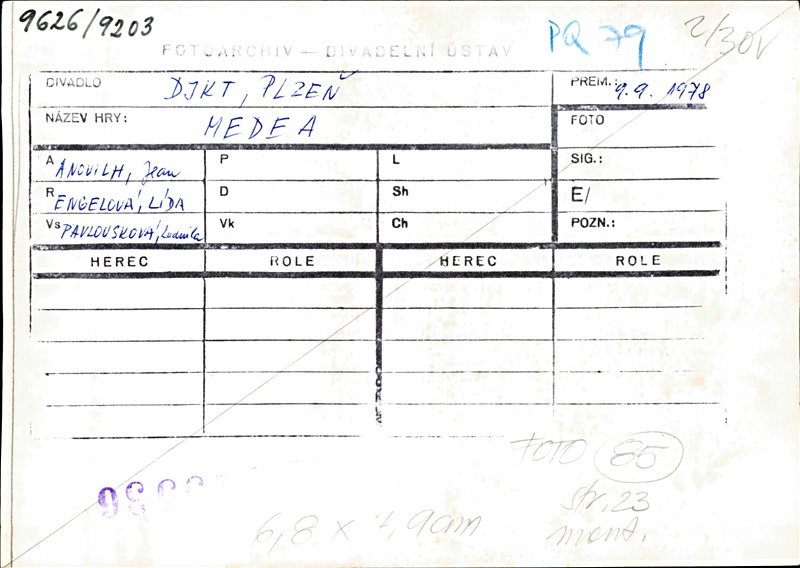 9626/9203
PQ 79
2/30V
FOTOARCHIV — DIVADELNÍ ÚSTAV
DIVADLO DJKT, PLZEŇ
PREM.: 9.9. 1978
NÁZEV HRY: MEDEA
FOTO
A ANOUILH, Jean P L SIG.:
R ENGELOVÁ, LÍDA D Sh E/
Vs PAVLOUSKOVÁ, Ludmila Vk Ch POZN.:
HEREC ROLE HEREC ROLE
FOTO 85
str. 23
mont.
6,8 x 4,9cm